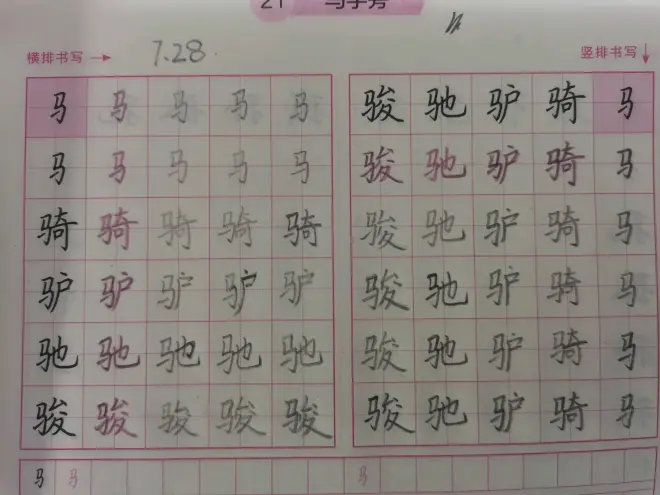 21 马字旁
横排书写 → 7.28 竖排书写 ↓
马 马 马 马 马 骏 驰 驴 骑 马
马 马 马 马 马 骏 驰 驴 骑 马
骑 骑 骑 骑 骑 骏 驰 驴 骑 马
驴 驴 驴 驴 驴 骏 驰 驴 骑 马
驰 驰 驰 驰 驰 骏 驰 驴 骑 马
骏 骏 骏 骏 骏 骏 驰 驴 骑 马
马 马 马